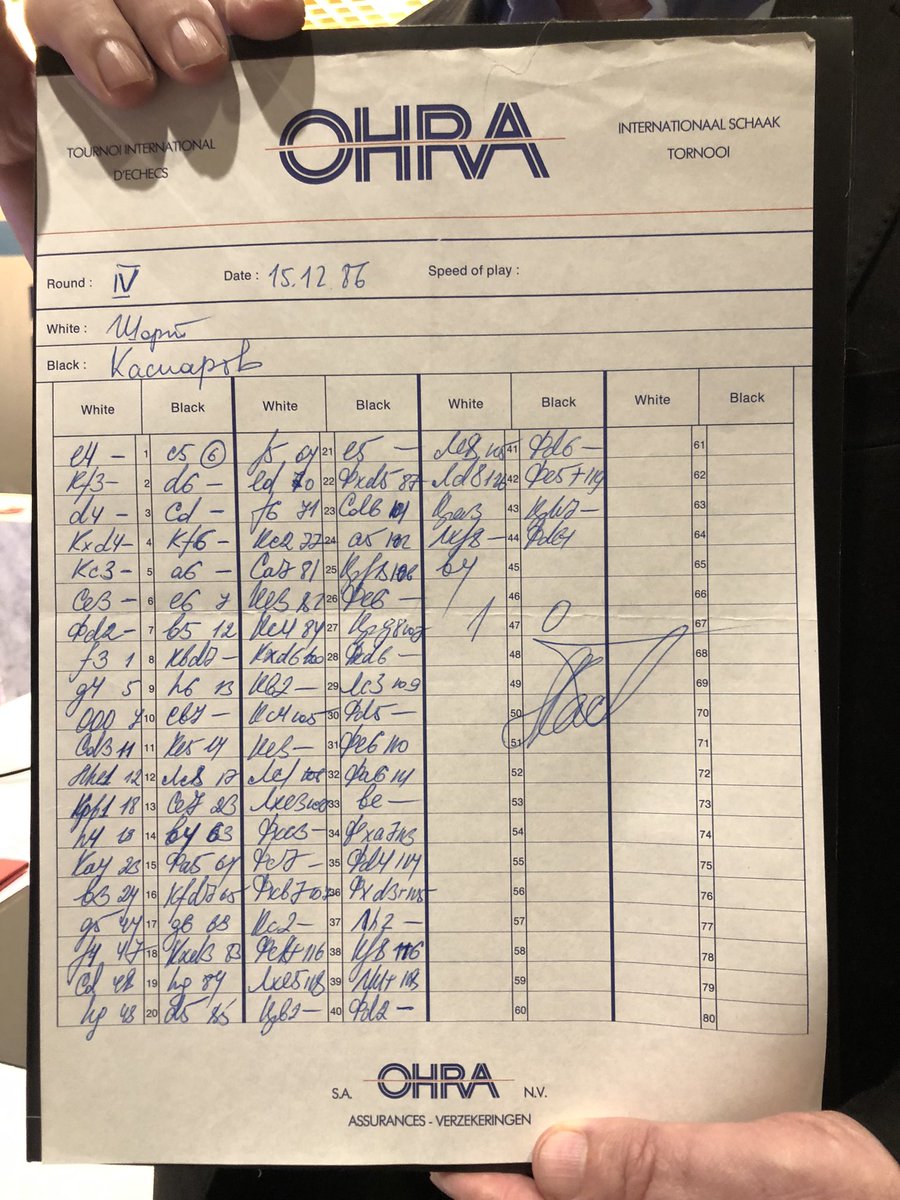 TOURNOI INTERNATIONAL
D'ECHECS
OHRA
INTERNATIONAAL SCHAAK
TORNOOI
Round : IV Date : 15.12.86 Speed of play :
White : Шорт
Black : Каспаров
White Black White Black White Black White Black
e4 – 1 c5 ⑥ f5 64 21 e5 – Лc8 105 41 Фd6 – 61
Kf3 – 2 d6 – ed 70 22 Фxd5 87 Лd8 126 42 Фe5 + 119 62
d4 – 3 cd – f6 71 23 Cd6 43 Крb7 – 63
Kxd4 – 4 Kf6 – Kc2 77 24 a5 102 Лf8 – 44 Фd4 64
Kc3 – 5 a6 – Ca7 81 25 Крf8 106 b4 45 65
Ce3 – 6 e6 7 82 26 Фe6 – 46 66
Фd2 – 7 b5 12 Kc4 84 27 Крg8 107 1 47 0 67
f3 1 8 Kbd7 – Kxd6 100 28 Фxd6 – 48 68
g4 5 9 h6 13 Kb2 – 29 Лc3 109 49 69
000 7 10 Cb7 – Kc4 105 30 Фd5 – 50 70
Cd3 11 11 Ke5 14 Ke3 – 31 Фe6 110 51 71
Лhe1 12 12 Лc8 17 Лc1 108 32 Фa6 111 52 72
Крb1 18 13 Ce7 23 Лxe3 109 33 be – 53 73
h4 19 14 b4 63 Фxe3 – 34 Фxa7 113 54 74
Ka4 23 15 Фa5 64 Фc7 – 35 Фd4 114 55 75
b3 24 16 Kfd7 65 Фxb7 107 36 Фxd3+ 115 56 76
g5 44 17 g6 69 Kc2 – 37 Лh2 – 57 77
f4 47 18 Kxd3 83 Фc8+ 116 38 Kf8 116 58 78
cd 48 19 hg 84 Лxe5 118 39 Лh1+ 118 59 79
hg 48 20 d5 85 Крb2 – 40 Фd2 – 60 80
S.A. OHRA N.V.
ASSURANCES - VERZEKERINGEN